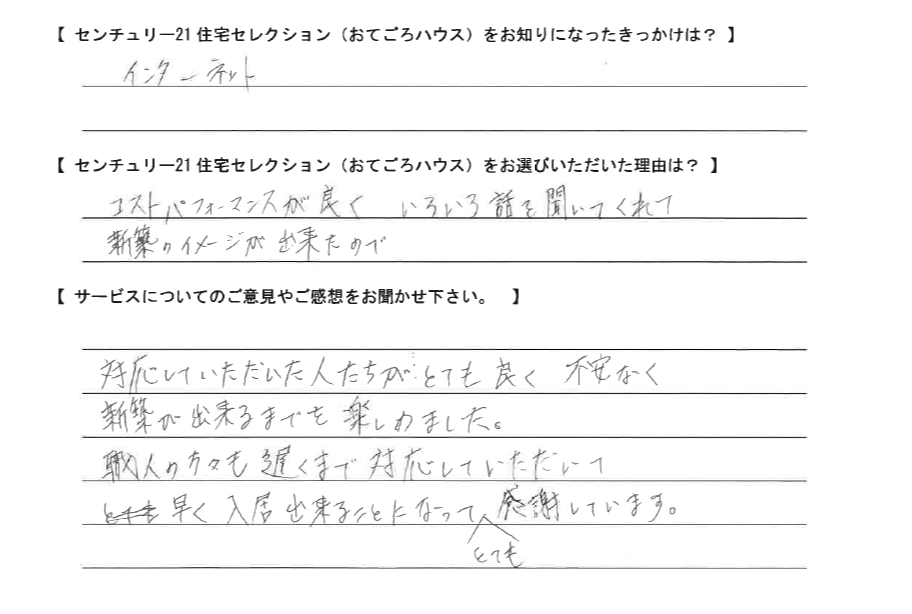 【 センチュリー21 住宅セレクション（おてごろハウス）をお知りになったきっかけは？ 】
インターネット
【 センチュリー21 住宅セレクション（おてごろハウス）をお選びいただいた理由は？ 】
コストパフォーマンスが良く いろいろ話を聞いてくれて
新築のイメージが出来たので
【 サービスについてのご意見やご感想をお聞かせ下さい。 】
対応していただいた人たちがとても良く 不安なく
新築が出来るまでを楽しめました。
職人の方々も遅くまで対応していただいて
とても 早く入居出来ることになって 感謝しています。
とても